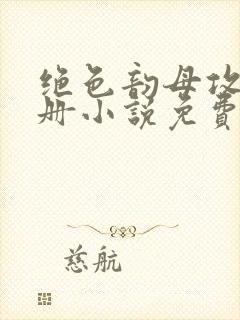 绝色韵母攻
册小说免费
慈航